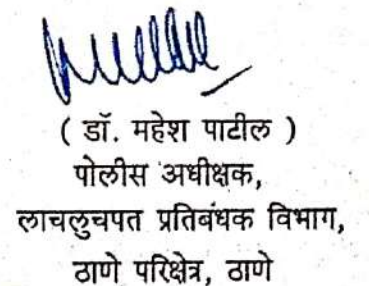 ( डॉ. महेश पाटील )
पोलीस अधीक्षक,
लाचलुचपत प्रतिबंधक विभाग,
ठाणे परिक्षेत्र, ठाणे